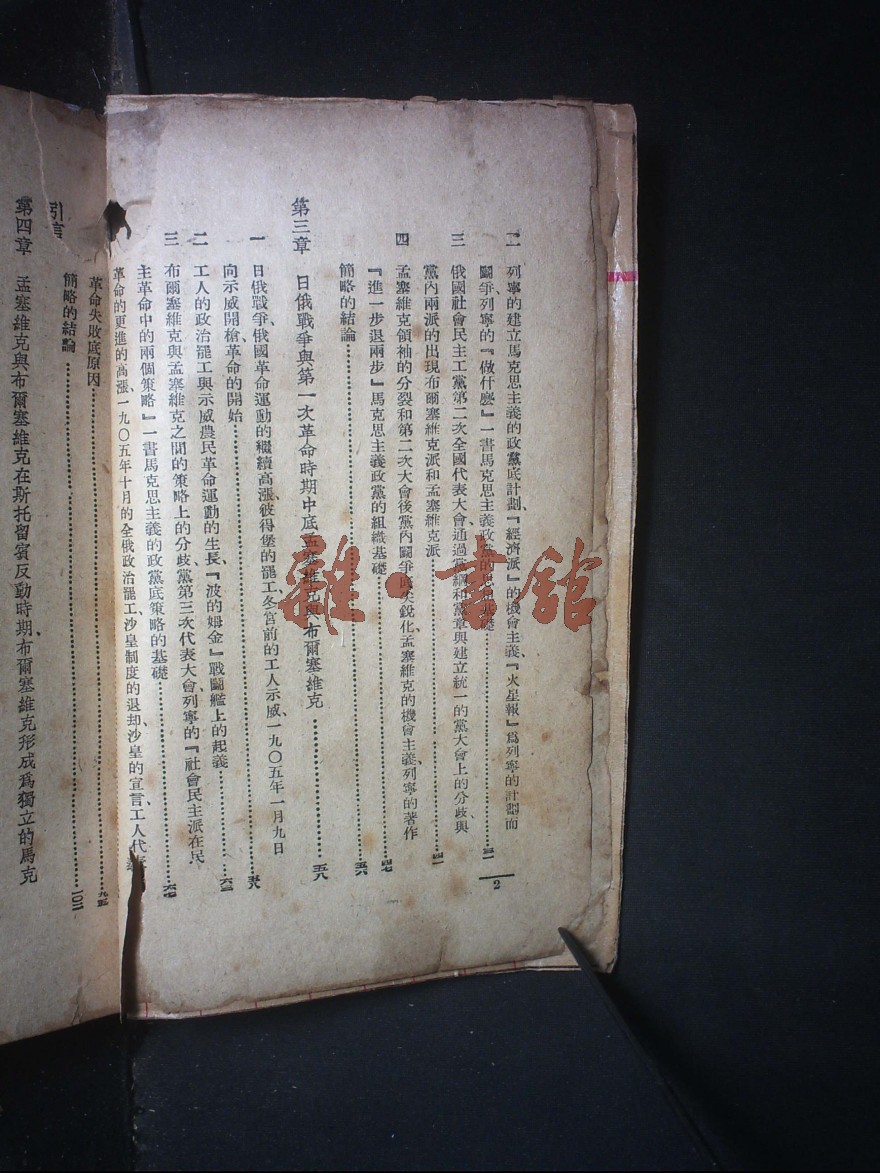 二 列寧的建立馬克思主義的政黨底計劃、『經濟派』的機會主義、『火星報』爲列寧的計劃而
鬭爭、列寧的『做什麽』一書馬克思主義政黨的思想基礎……三一
三 俄國社會民主工黨第二次全國代表大會、通過黨綱和黨章與建立統一的黨大會上的分歧與
黨內兩派的出現布爾塞維克派和孟塞維克派……四一
四 孟塞維克領袖的分裂和第二次大會後黨內鬭爭底尖銳化孟塞維克的機會主義、列寧的著作
『進一步退兩步』馬克思主義政黨的組織基礎……四七
簡略的結論……五六
第三章 日俄戰爭與第一次革命時期中底孟塞維克與布爾塞維克……五八
一 日俄戰爭、俄國革命運動的繼續高漲彼得堡的罷工、冬宮前的工人示威、一九〇五年一月九日
向示威開槍、革命的開始……五八
二 工人的政治罷工與示威農民革命運動的生長、『波的姆金』戰鬭艦上的起義……六三
三 布爾塞維克與孟塞維克之間的策略上的分歧黨第三次代表大會、列寧的『社會民主派在民
主革命中的兩個策略』一書馬克思主義的政黨底策略的基礎……
革命的更進的高漲、一九〇五年十月的全俄政治罷工沙皇制度的退却、沙皇的宣言、工人代表
革命失敗底原因……
簡略的結論……
引言
第四章 孟塞維克與布爾塞維克在斯托留賓反動時期、布爾塞維克形成爲獨立的馬克
2
雜·書館